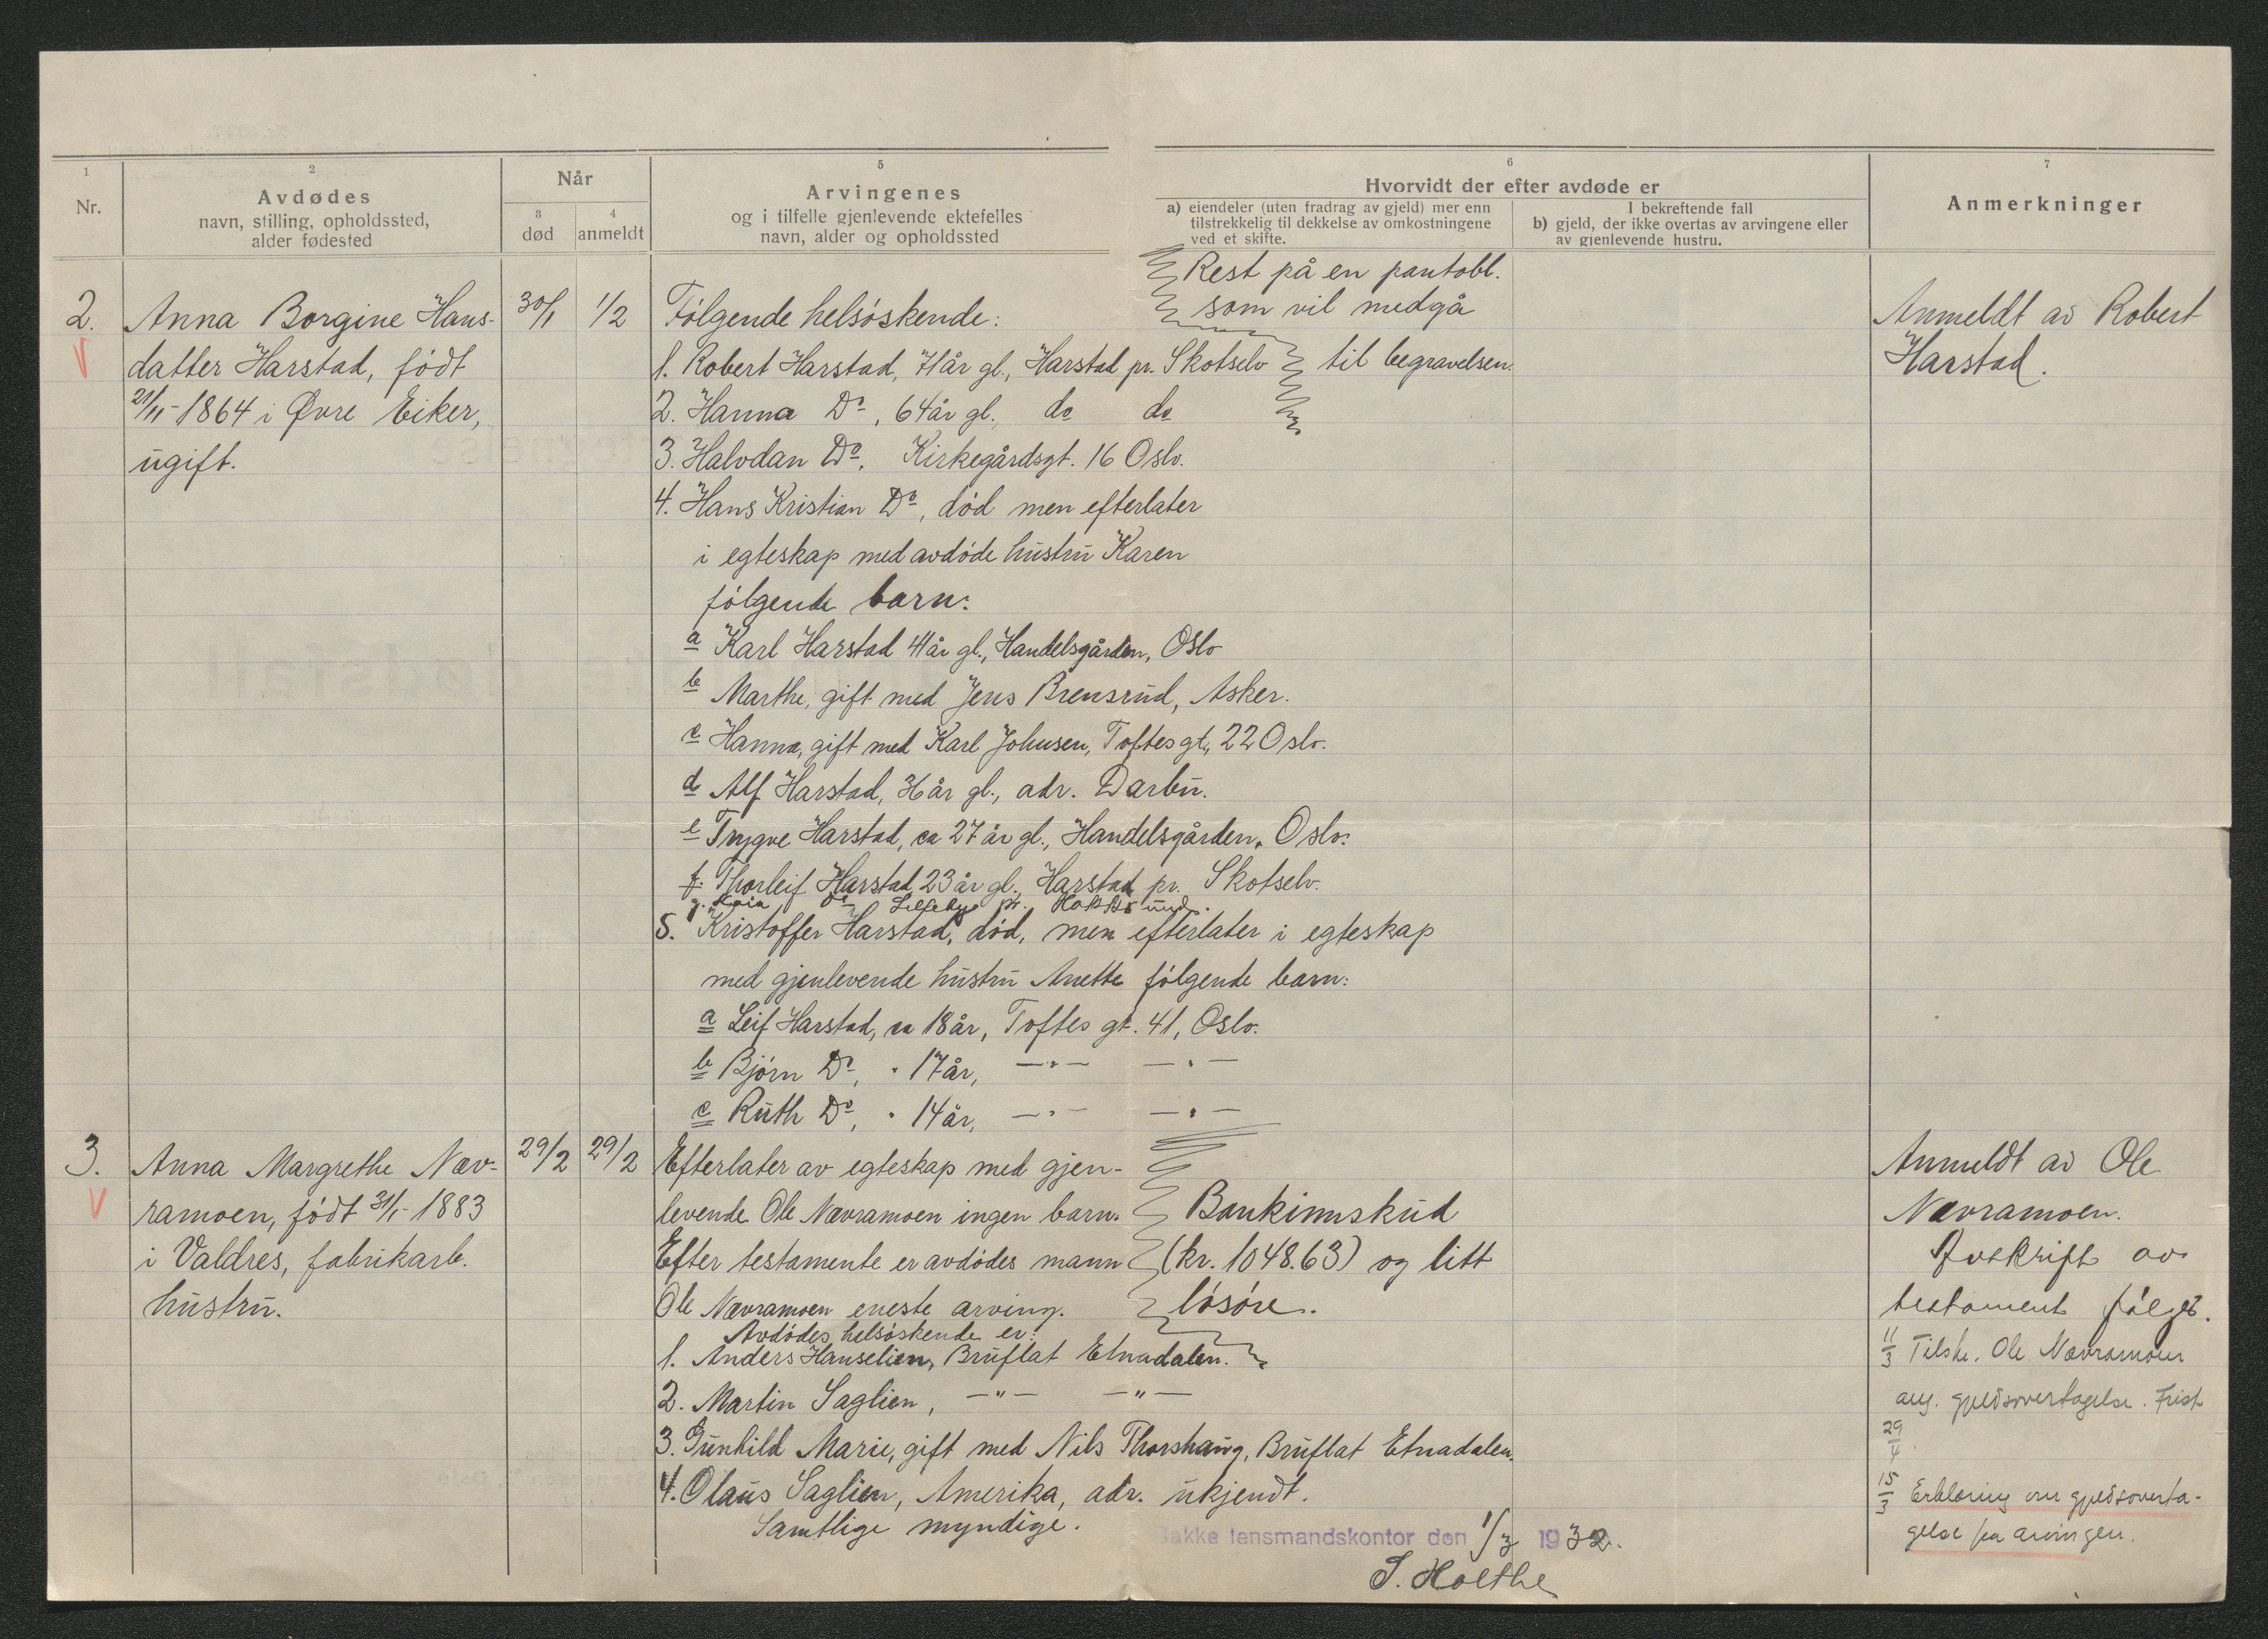 1
Nr.
2
Avdødes
navn, stilling, opholdssted,
alder fødested
Når
3
død
4
anmeldt
5
Arvingenes
og i tilfelle gjenlevende ektefelles
navn, alder og opholdssted
6
Hvorvidt der efter avdøde er
a) eiendeler (uten fradrag av gjeld) mer enn
tilstrekkelig til dekkelse av omkostningene
ved et skifte.
I bekreftende fall
b) gjeld, der ikke overtas av arvingene eller
av gjenlevende hustru.
7
Anmerkninger
2.
Anna Borgine Hans-
datter Harstad, født
21/11-1864 i Øvre Eiker,
ugift.
30/1
1/2
Følgende helsøskende:
1. Robert Harstad, 71 år gl., Harstad pr. Skotselv
2. Hanna Do, 64 år gl., do do
3. Halvdan Do, Kirkegårdsgt. 16 Oslo.
4. Hans Kristian Do, død men efterlater
i egteskap med avdøde hustru Karen
følgende barn:
a Karl Harstad 41 år gl., Handelsgården, Oslo
b Marthe, gift med Jens Brensrud, Asker.
c Hanna, gift med Karl Johnsen, Toftesgt. 22 Oslo.
d Alf Harstad, 36 år gl., adr. Darbu.
e Trygve Harstad, ca 27 år gl., Handelsgården, Oslo.
f. Thorleif Harstad, 23 år gl., Harstad pr. Skotselv.
g. do pr. Hokksund.
5. Kristoffer Harstad, død, men efterlater i egteskap
med gjenlevende hustru Anette følgende barn:
a Leif Harstad, ca 18 år, Toftes gt. 41, Oslo.
b Bjørn Do, " 17 år, —"— —"—
c Ruth Do, " 14 år, —"— —"—
Rest på en pantobl.
som vil medgå
til begravelsen.
Anmeldt av Robert
Harstad.
3.
Anna Margrethe Næv-
ramoen, født 31/1-1883
i Valdres, fabrikarb.
hustru.
29/2
29/2
Efterlater av egteskap med gjen-
levende Ole Nævramoen ingen barn.
Efter testamente er avdødes mann
Ole Nævramoen eneste arving.
Avdødes helsøskende er:
1. Anders Hanselien, Bruflat Etnadalen.
2. Martin Saglien, —"— —"—
3. Gunhild Marie, gift med Nils Thorshaug, Bruflat Etnadalen.
4. Olaus Saglien, Amerika, adr. ukjendt.
Samtlige myndige.
Bankinnskud
(kr. 1048.63) og litt
løsøre.
Anmeldt av Ole
Nævramoen.
Avskrift av
testament følger.
11/3 Tilskr. Ole Nævramoen
ang. gjeldsovertagelse. Frist
29/4.
15/3 Erklæring om gjeldsoverta-
gelse fra arvingen.
Bakke lensmandskontor den 1/3 1932.
S. Holthe